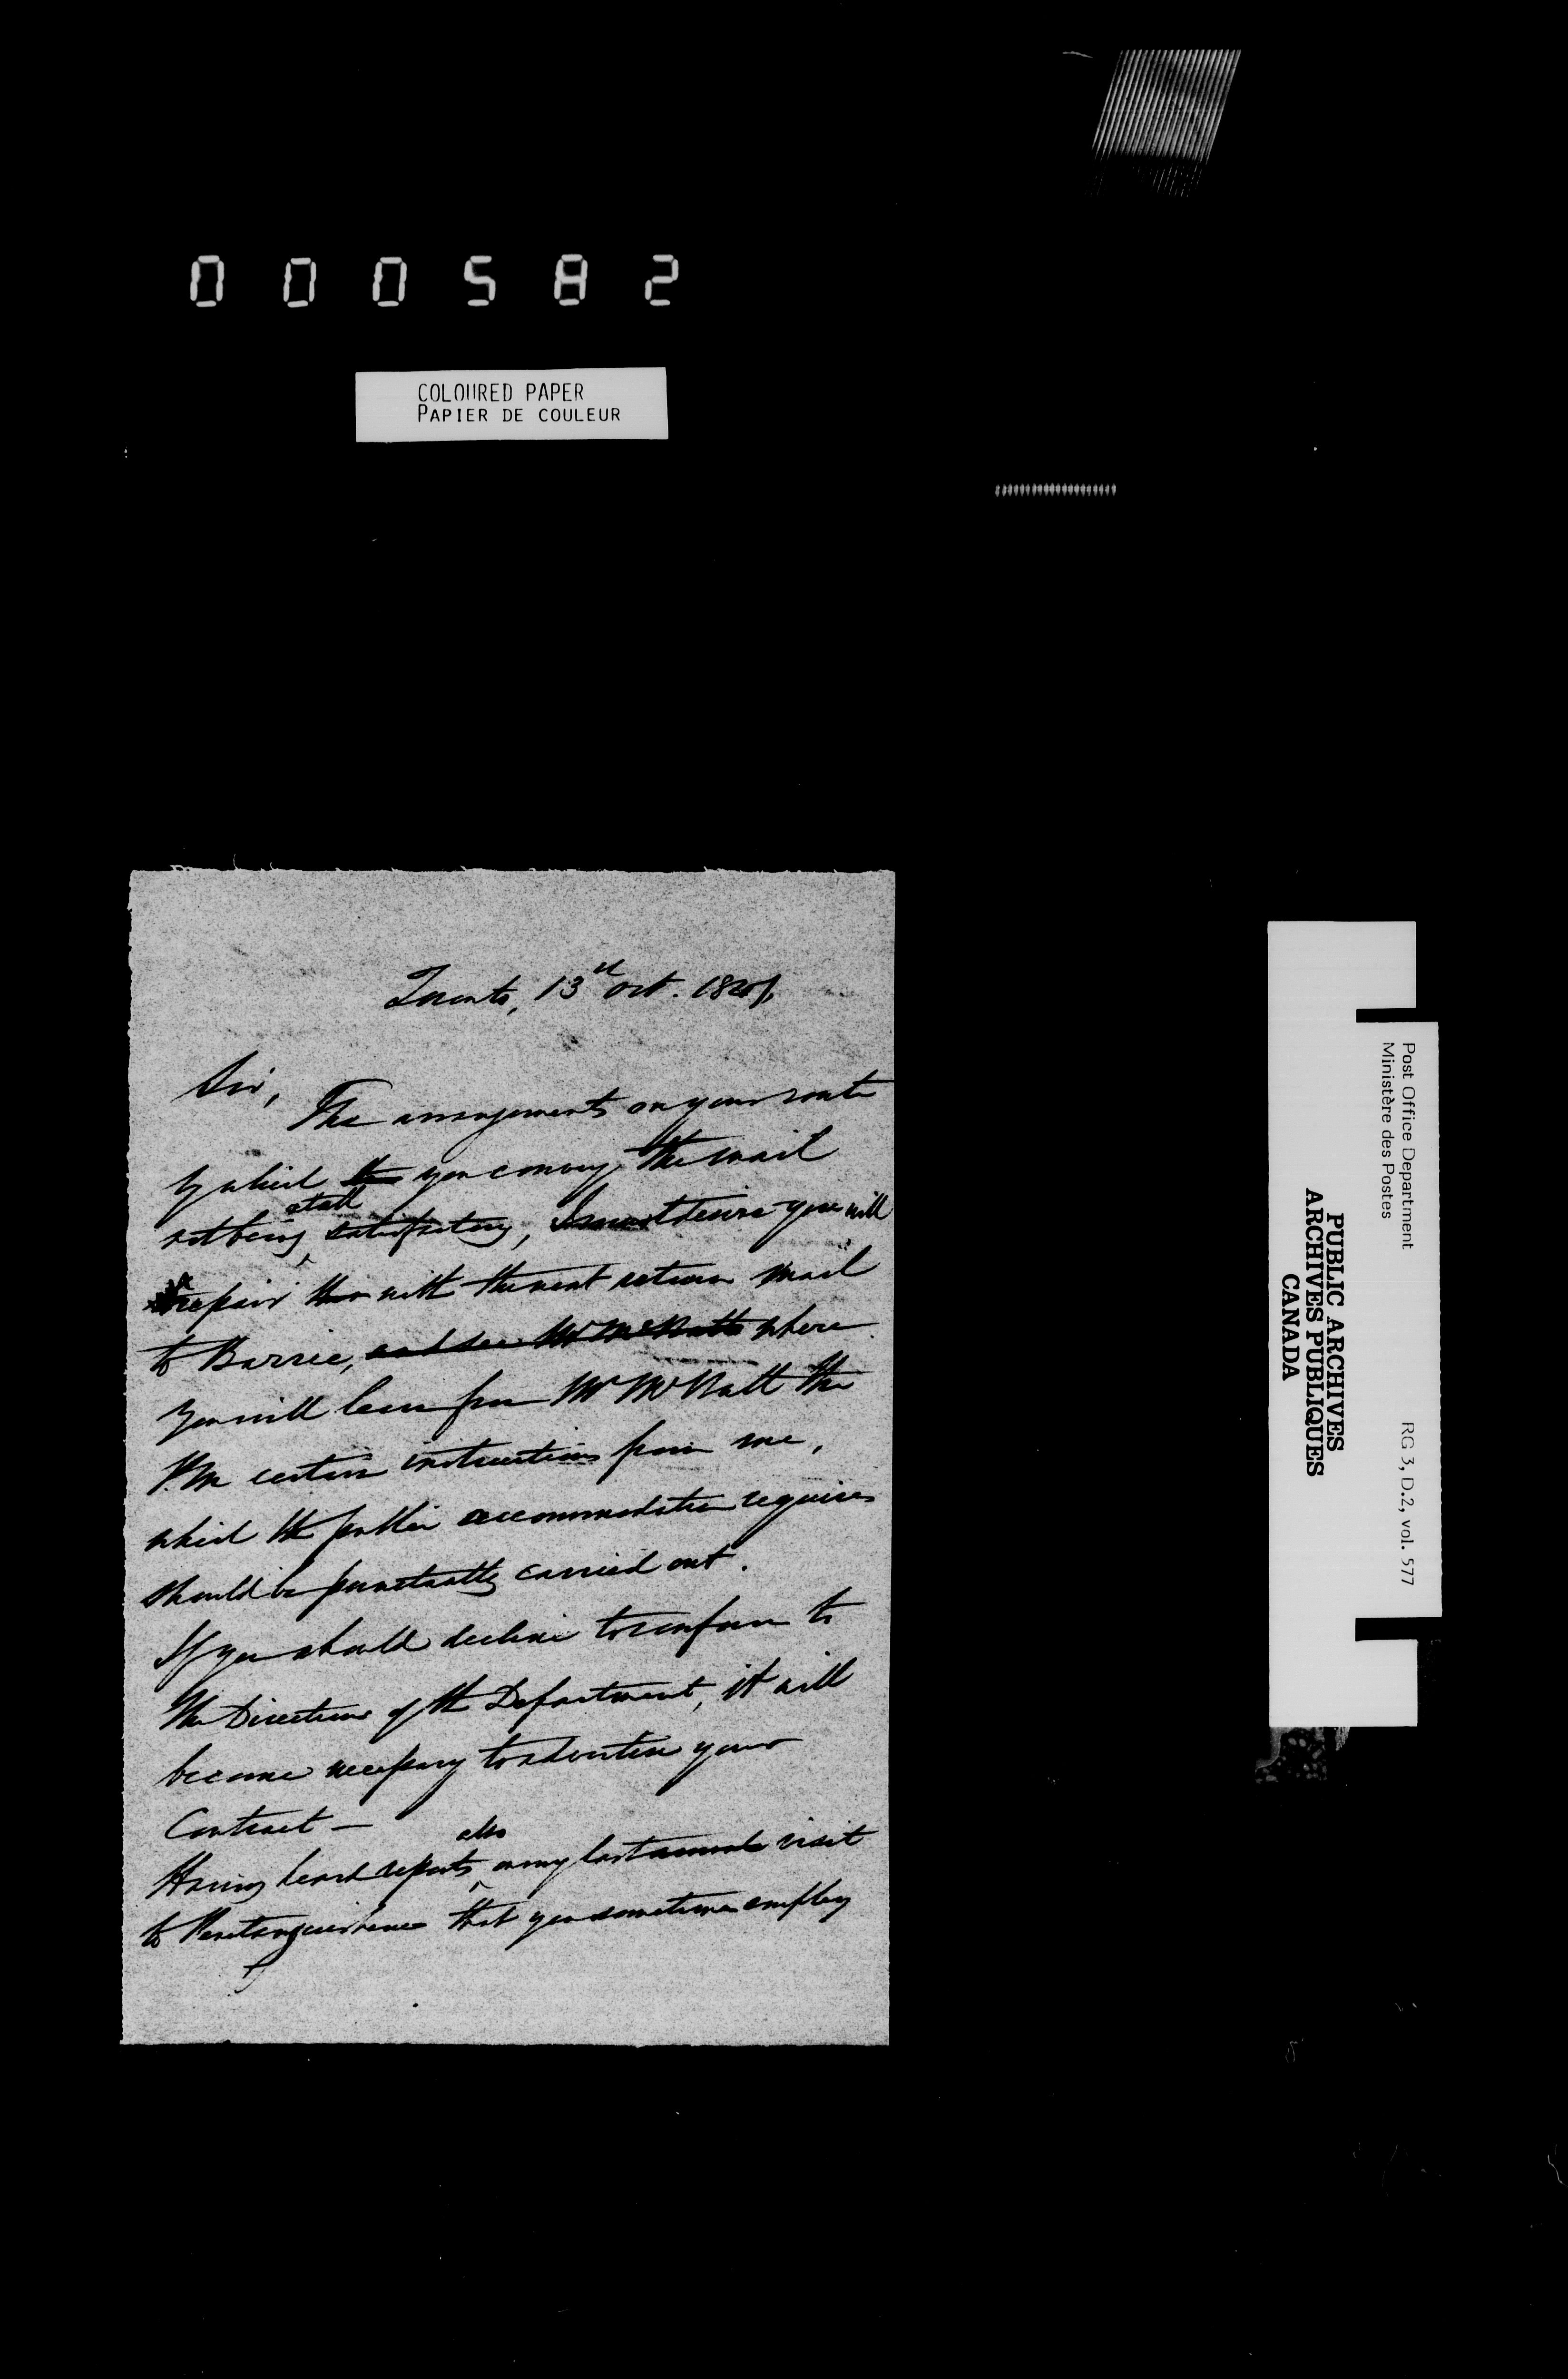 000582
COLOURED PAPER
PAPIER DE COULEUR
Toronto, 13th Oct. 18
Sir,
The arrangements on your route
by which the you convey the mail
not being at all satisfactory, I must desire you will
repair with the next return mail
to Barrie, and see Mr McWatt where
you will learn from Mr McWatt the
P.M. certain instructions from me,
which the public accommodation requires
should be punctually carried out.
If you should decline to conform to
the Directions of the Department, it will
become necessary to advertise your
Contract —
Having heard reports also, on my last visit
to Penetanguishene that you sometimes employ
Post Office Department
Ministère des Postes
RG 3, D.2, vol. 577
PUBLIC ARCHIVES
ARCHIVES PUBLIQUES
CANADA